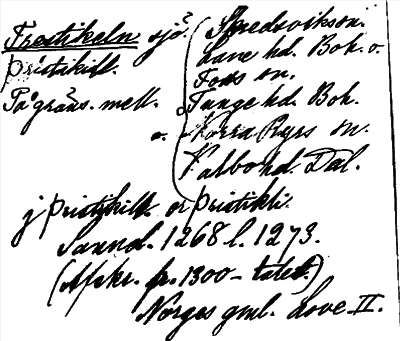 Trestikeln sjö.
þristikill.
På gräns. mell.
Spredsviks sn.
Lane hd. Boh. o.
Foss sn.
Tunge hd. Boh.
o. Norra Ryrs sn.
Valbo hd. Dal.
j þristikill. or þristikli.
Sannol. 1268 l. 1273.
(Afskr. fr. 1300-talet.)
Norges gml. Love II.